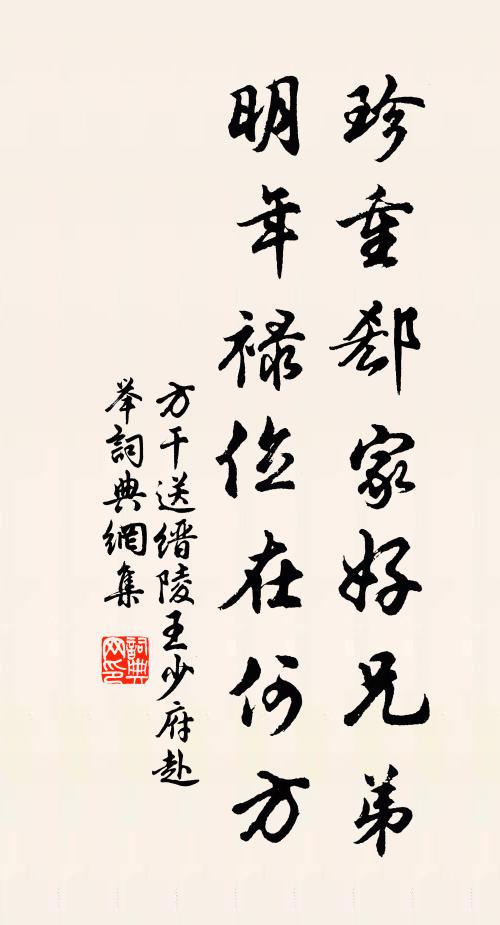 珍重郄家好兄弟
明年禄位在何方
方干送缙陵王少府赴
举詞典網集
詞典
网印